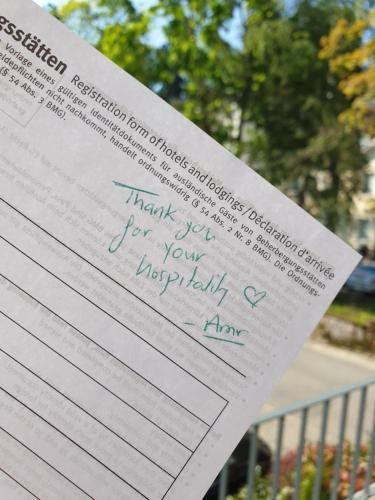 gsstätten Registration form of hotels and lodgings / Déclaration d'arrivée
Vorlage eines gültigen Identitätsdokuments für ausländische Gäste von Beherbergungsstätten
eldepflichten nicht nachkommt, handelt ordnungswidrig (§ 54 Abs. 2 Nr. 8 BMG). Die Ordnungs-
(§ 54 Abs. 3 BMG).
Thank you
for your
hospitality ♡
- Amr